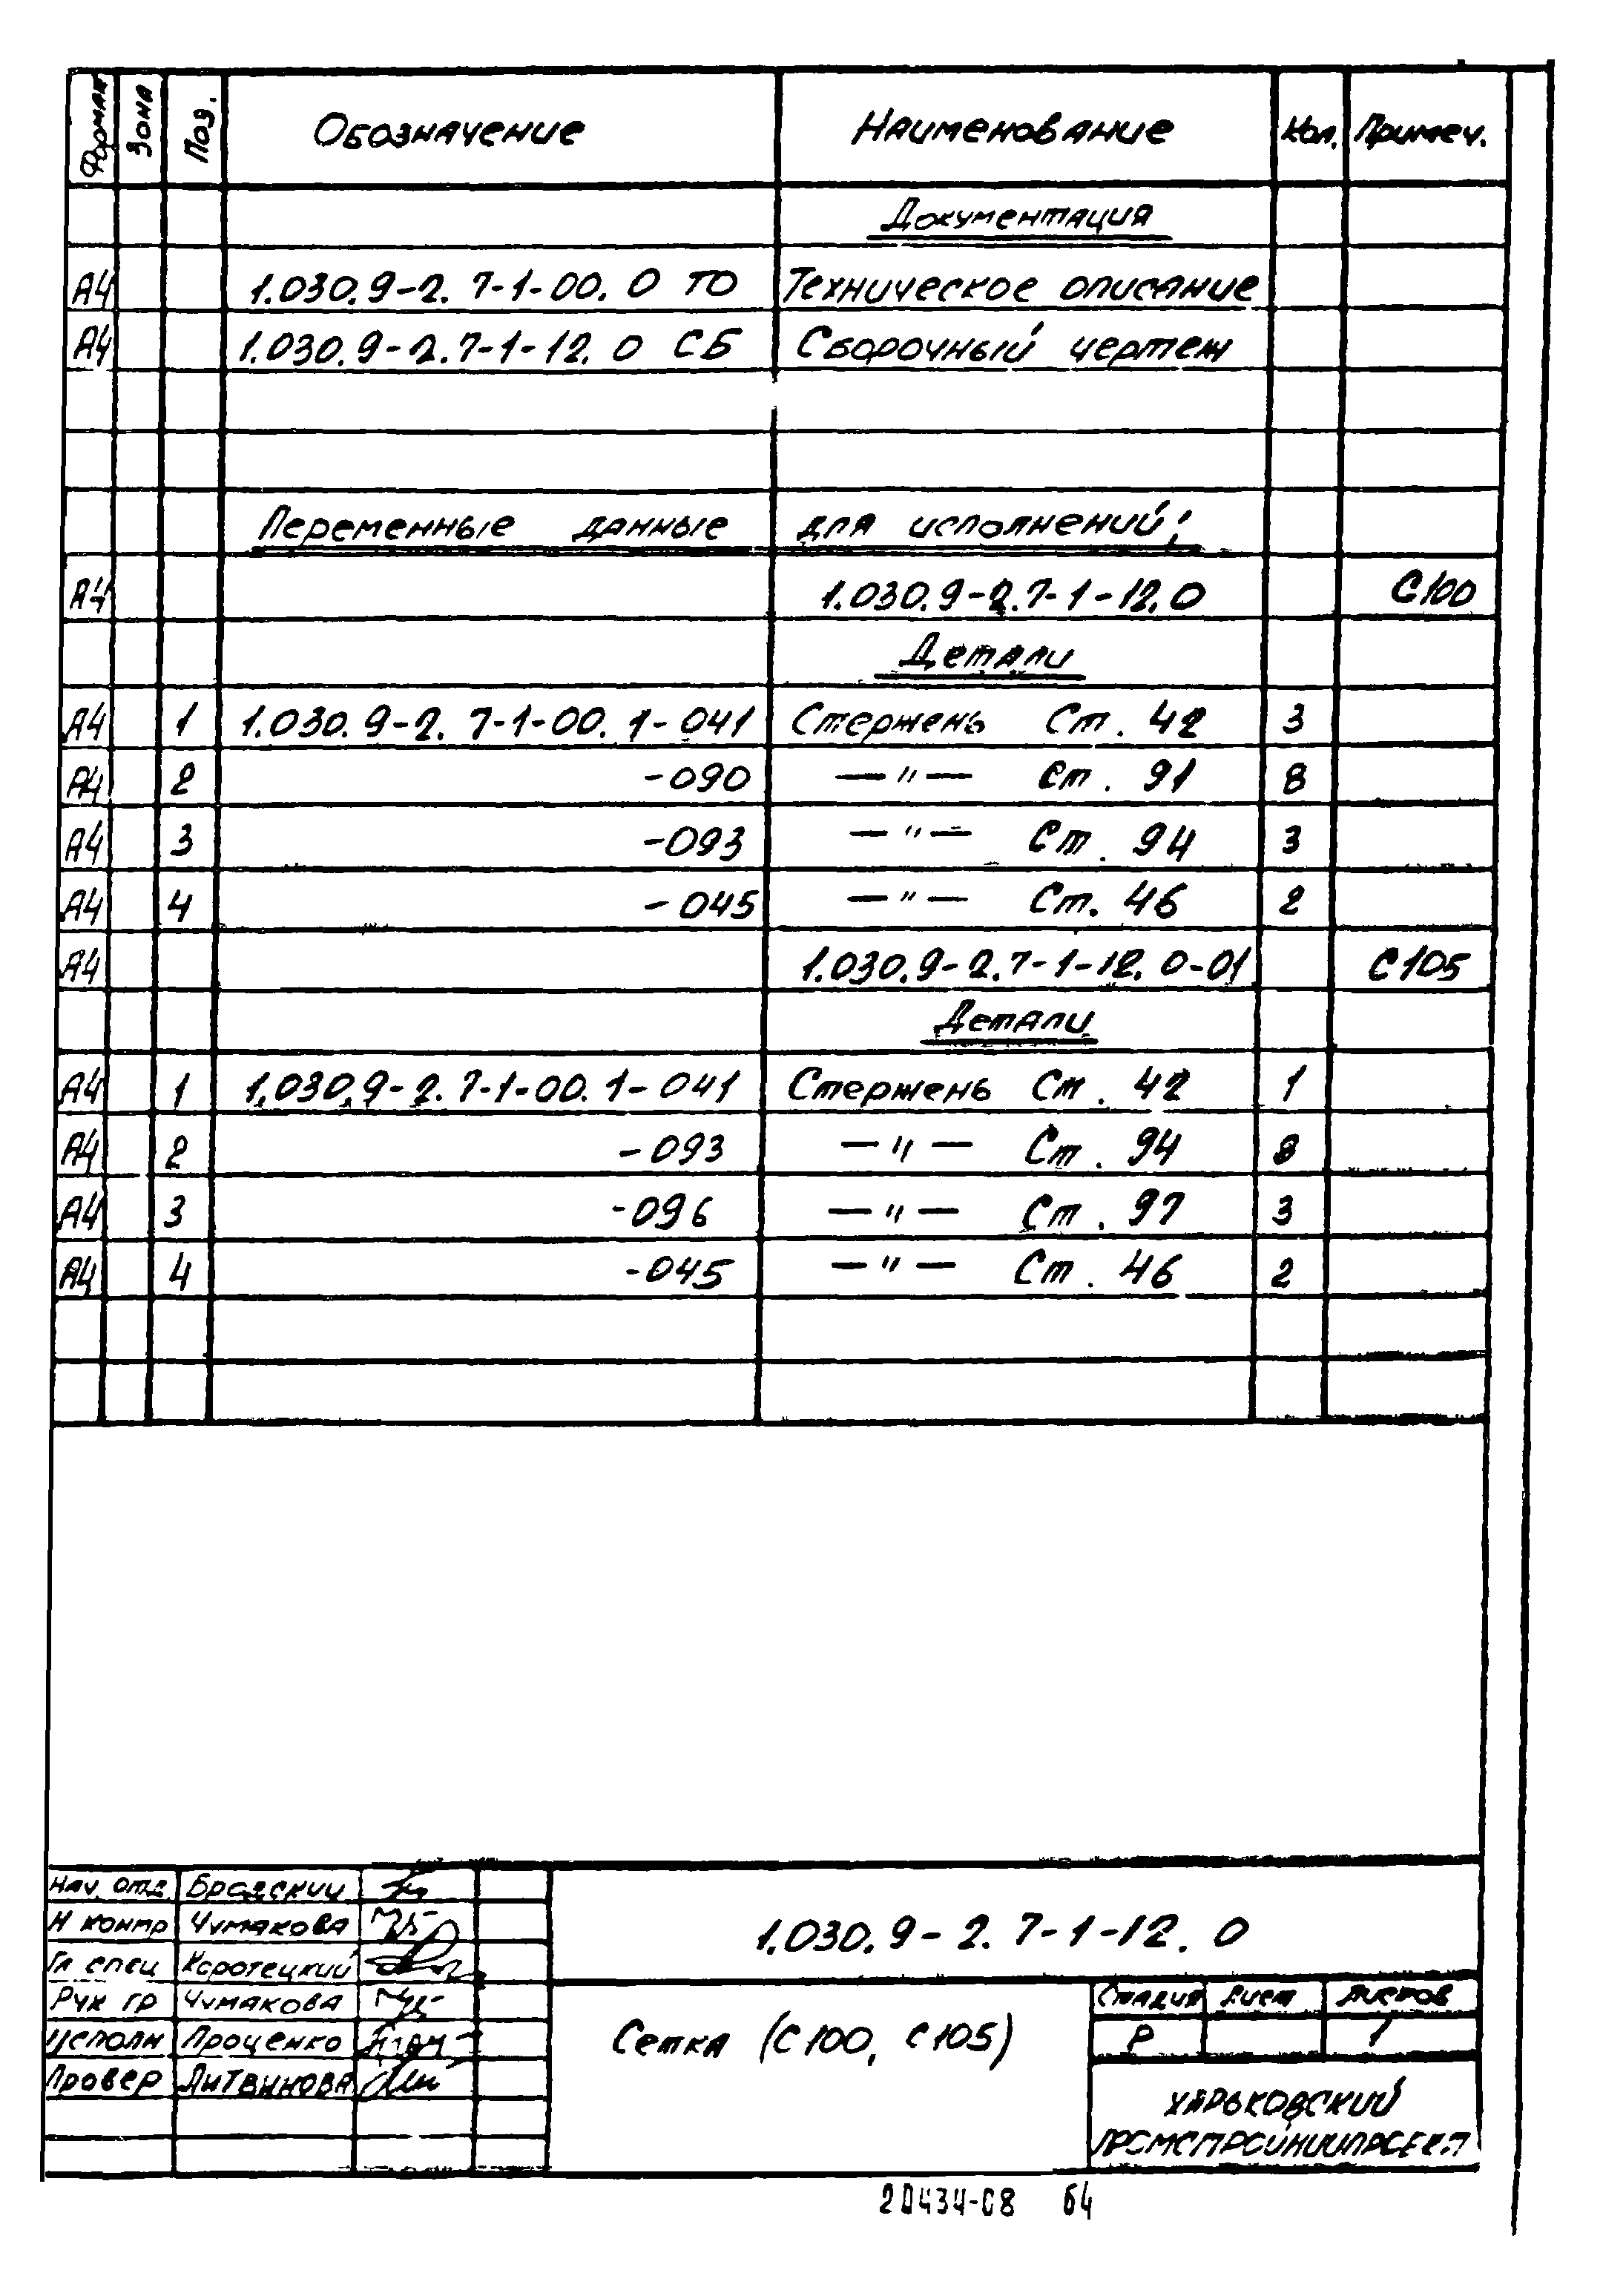 Формат Зона Поз. Обозначение Наименование Кол. Примеч.
Документация
А4 1.030.9-2.7-1-00.0 ТО Техническое описание
А4 1.030.9-2.7-1-12.0 СБ Сборочный чертеж
Переменные данные для исполнений:
А4 1.030.9-2.7-1-12.0 С100
Детали
А4 1 1.030.9-2.7-1-00.1-041 Стержень Ст. 42 3
А4 2 -090 —"— Ст. 91 8
А4 3 -093 —"— Ст. 94 3
А4 4 -045 —"— Ст. 46 2
А4 1.030.9-2.7-1-12.0-01 С105
Детали
А4 1 1.030.9-2.7-1-00.1-041 Стержень Ст. 42 1
А4 2 -093 —"— Ст. 94 8
А4 3 -096 —"— Ст. 97 3
А4 4 -045 —"— Ст. 46 2
Нач. отд. Бродский
Н контр Чумакова
Гл спец Коротецкий
Рук гр Чумакова
Исполн Проценко
Провер Литвинова
1.030.9-2.7-1-12.0
Сетка (С100, С105)
Стадия Лист Листов
Р 1
ХАРЬКОВСКИЙ
ПРОМСТРОЙНИИПРОЕКТ
20434-08 64